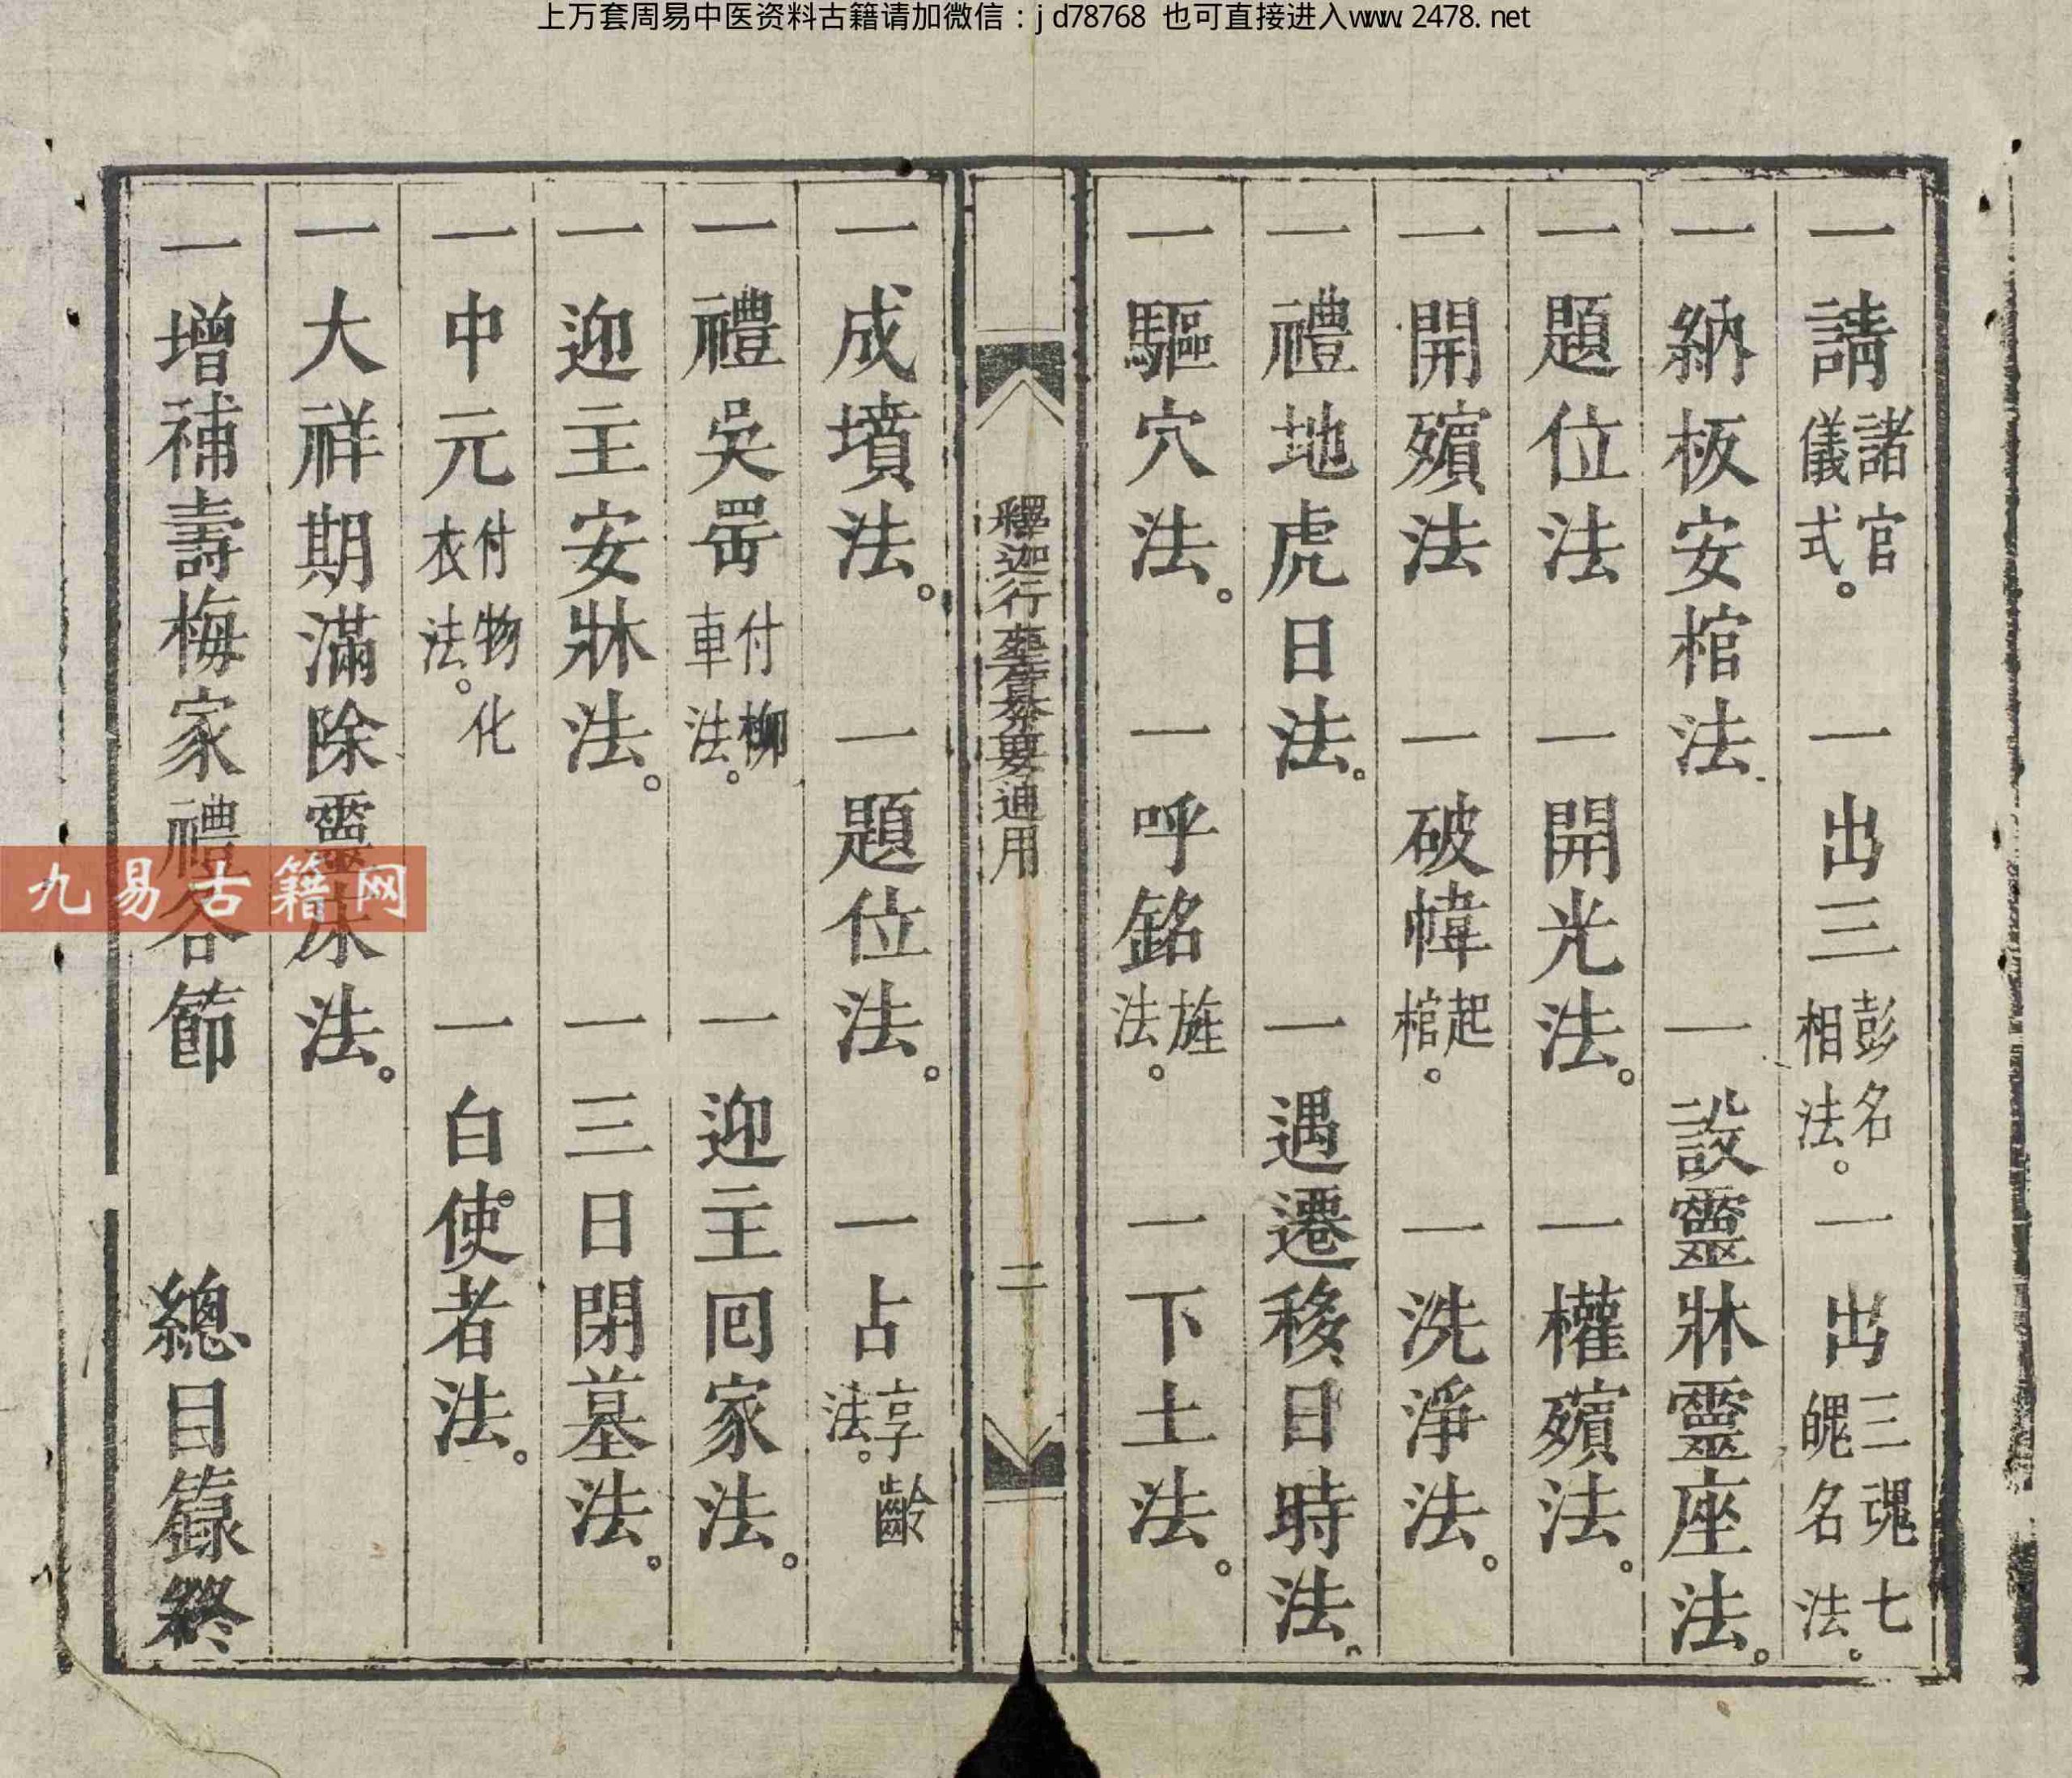 上万套周易中医资料古籍请加微信：jd78768 也可直接进入www.2478.net
一請諸官儀式。 一出三彭名相名法。 一出三魂七魄名法。
一納板安棺法。 一設靈牀靈座法。
一題位法 一開光法。 一權殯法。
一開殯法 一破幃起棺。 一洗淨法。
一禮地虎日法。 一遇遷移日時法。
一驅穴法。 一呼銘旌法。 一下土法。
釋迦行 要通用 二
一成墳法。 一題位法。 一占享齡法。
一禮吳罡付柳車法。 一迎主囘家法。
一迎主安牀法。 一三日閉墓法。
一中元付物化衣法。 一白使者法。
一大祥期滿除靈床法。
一增補壽梅家禮各節 總目籙終
九易古籍网